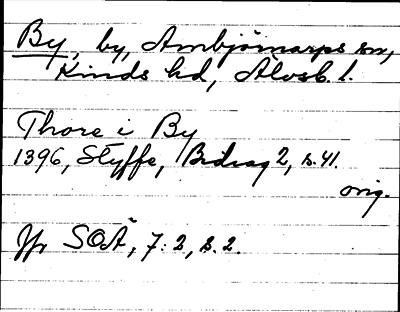 By, by, Ambjörnarps sn,
Kinds hd, Älvsb. l.
Thore i By
1396, Styffe, Bidrag 2, s. 41.
orig.
Jfr SOÄ, 7:2, s. 2.